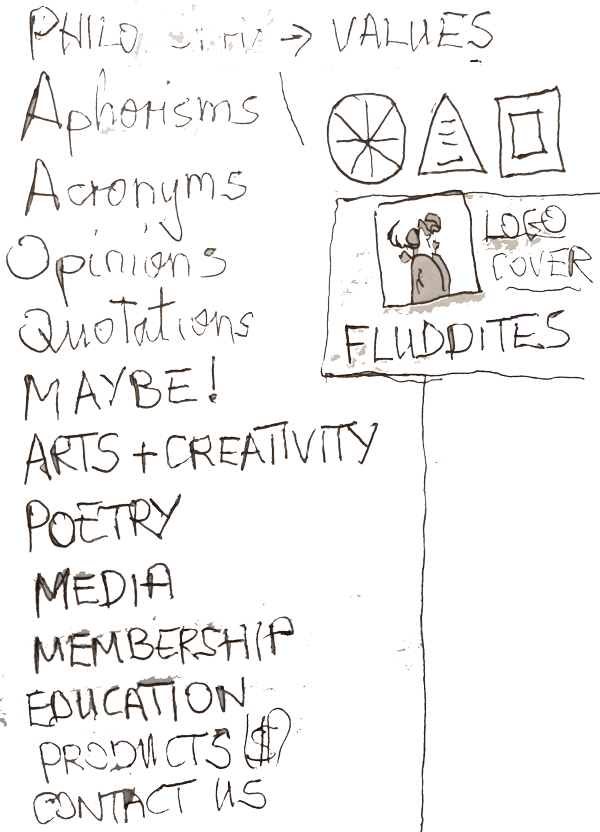 PHILO → VALUES
Aphorisms
Acronyms
Opinions
Quotations
MAYBE!
ARTS + CREATIVITY
POETRY
MEDIA
MEMBERSHIP
EDUCATION
PRODUCTS ($)
CONTACT US
LOGO
COVER
FLUDDITES